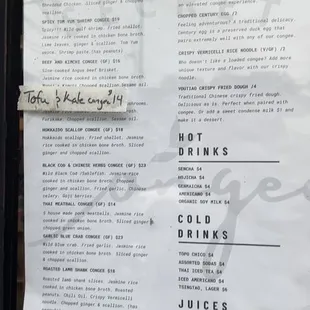 Shredded Chicken. Sliced ginger & chopped
scallion.
SPICY TOM YUM SHRIMP CONGEE $19
Spicy!!! Wild gulf shrimp. Fried shallot.
Jasmine rice cooked in chicken bone broth.
Lime leaves, ginger & scallion. Tom Yum
paste.
BEEF AND KIMCHI CONGEE $16
Slow-cooked Angus beef brisket.
Jasmine rice cooked in chicken bone broth.
Tofu & Kale congee $14
Furikake. Chopped scallion.
HOKKAIDO SCALLOP CONGEE (GF) $18
Hokkaido scallops. Fried shallot. Jasmine
rice cooked in chicken bone broth. Sliced
ginger & chopped scallion.
BLACK COD & CHINESE HERBS CONGEE (GF) $23
Wild Black Cod
rice cooked in chicken bone broth. Chopped
ginger and scallion. Fried garlic. Chinese
celery. Goji berries
THAI MEATBALL CONGEE (GF) $14
5 house made pork meatballs. Jasmine rice
cooked in chicken bone broth. Sliced ginger &
chopped green onion.
GARLIC BLUE CRAB CONGEE (GF) $23
Wild blue crab. Fried garlic. Jasmine rice
cooked in chicken bone broth. Sliced ginger
& chopped scallion.
ROASTED LAMB SHANK CONGEE $18
Roasted lamb shank slices. Jasmine rice
cooked in chicken bone broth. Roasted
peanuts. Chili Oil. Crispy Vermicelli
noodle. Chopped ginger & scallion.
an elevated congee experience.
CHOPPED CENTURY EGG /3
Feeling adventurous? A traditional delicacy.
Century egg is a preserved duck egg that
pairs extremely well with any of our congee.
CRISPY VERMICELLI RICE NOODLE (V/GF) /2
Who doesn't like a loaded congee? Add more
unique texture and flavor with our crispy
noodle.
YOUTIAO CRISPY FRIED DOUGH /4
Traditional Chinese crispy fried dough.
Delicious as is. Perfect when paired with
congee. Or add a sweet condense milk $1 and
make it a dessert.
HOT
DRINKS
SENCHA $4
HOJICHA $4
GENMAICHA $4
AMERICANO $4
ORGANIC SOY MILK $4
COLD
DRINKS
TOPO CHICO $4
ASSORTED SODAS $4
THAI ICED TEA $4
ICED AMERICANO $4
TSINGTAO, LAGER $6
JUICES